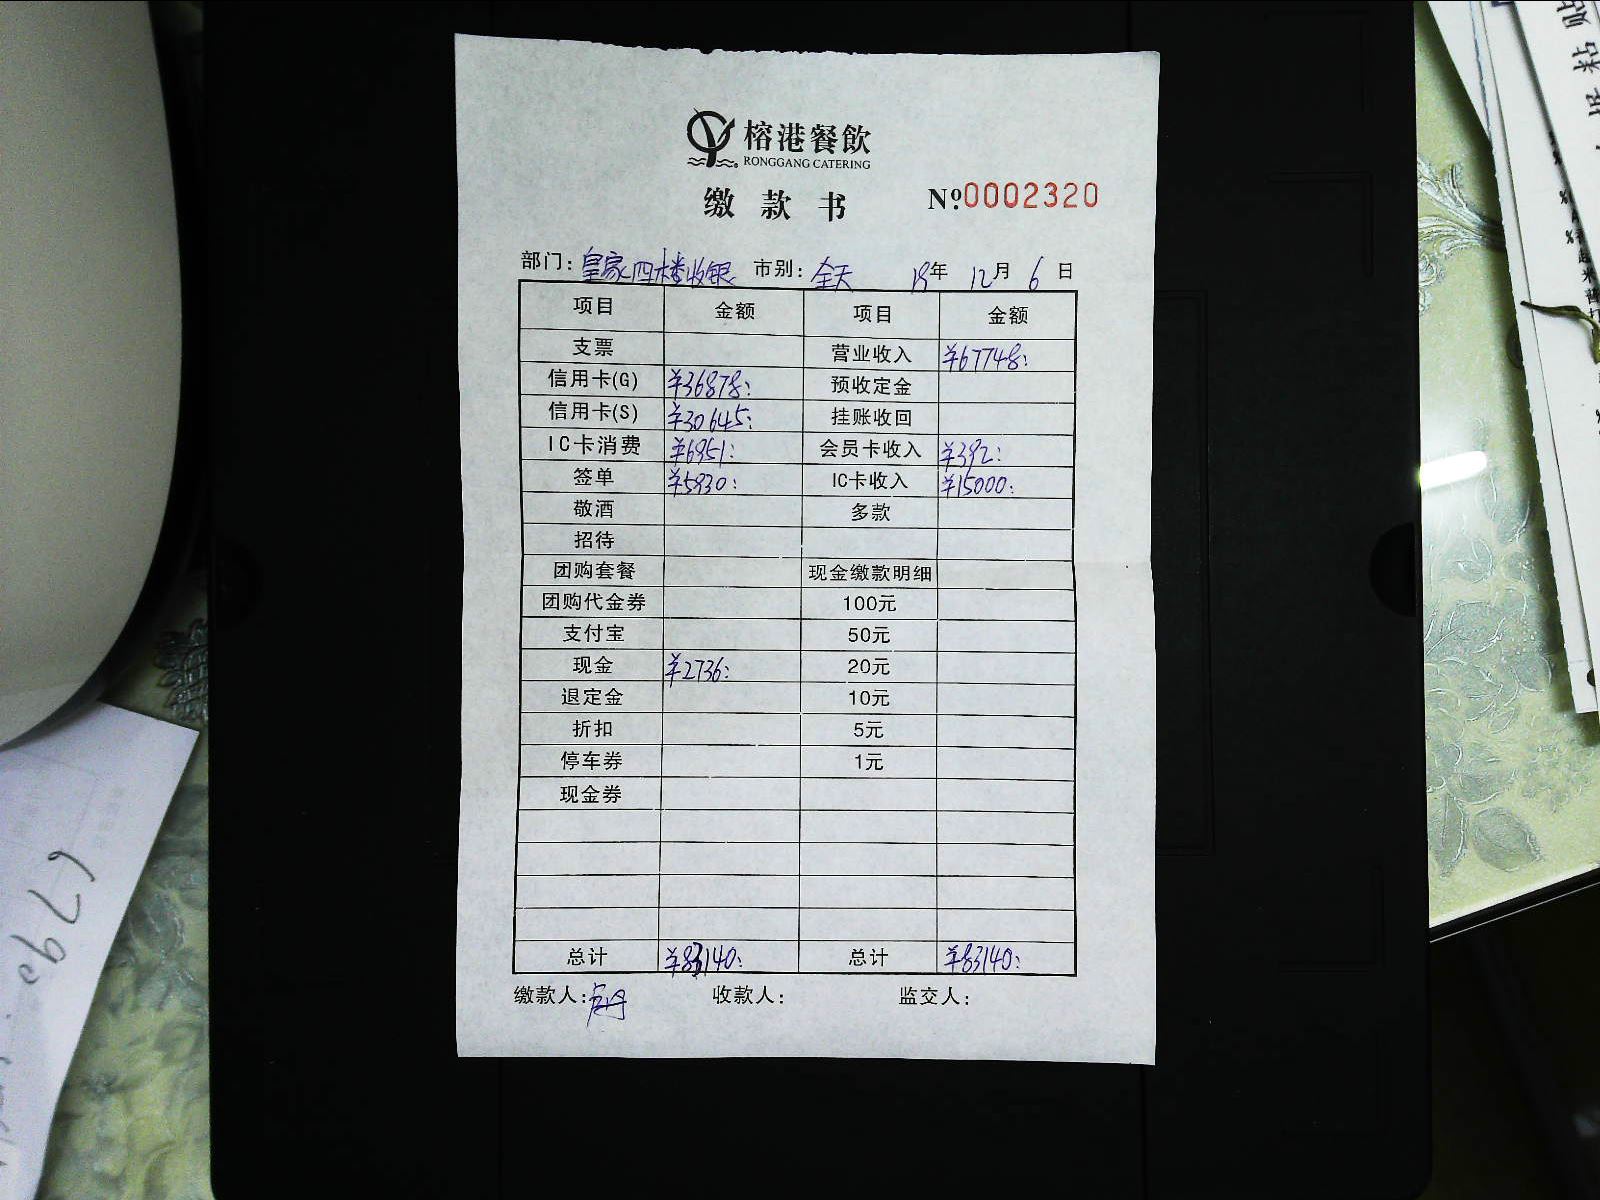 榕港餐飲
RONGGANG CATERING
缴款书 №0002320
部门：皇家四楼收银 市别：全天 19年 12月 6日
项目 金额 项目 金额
支票 营业收入 ¥67748:
信用卡(G) ¥36878: 预收定金
信用卡(S) ¥30645: 挂账收回
IC卡消费 ¥6951: 会员卡收入 ¥392:
签单 ¥5930: IC卡收入 ¥15000:
敬酒 多款
招待
团购套餐 现金缴款明细
团购代金券 100元
支付宝 50元
现金 ¥2736: 20元
退定金 10元
折扣 5元
停车券 1元
现金券
总计 ¥83140: 总计 ¥83140:
缴款人： 收款人： 监交人：
6790
粘贴